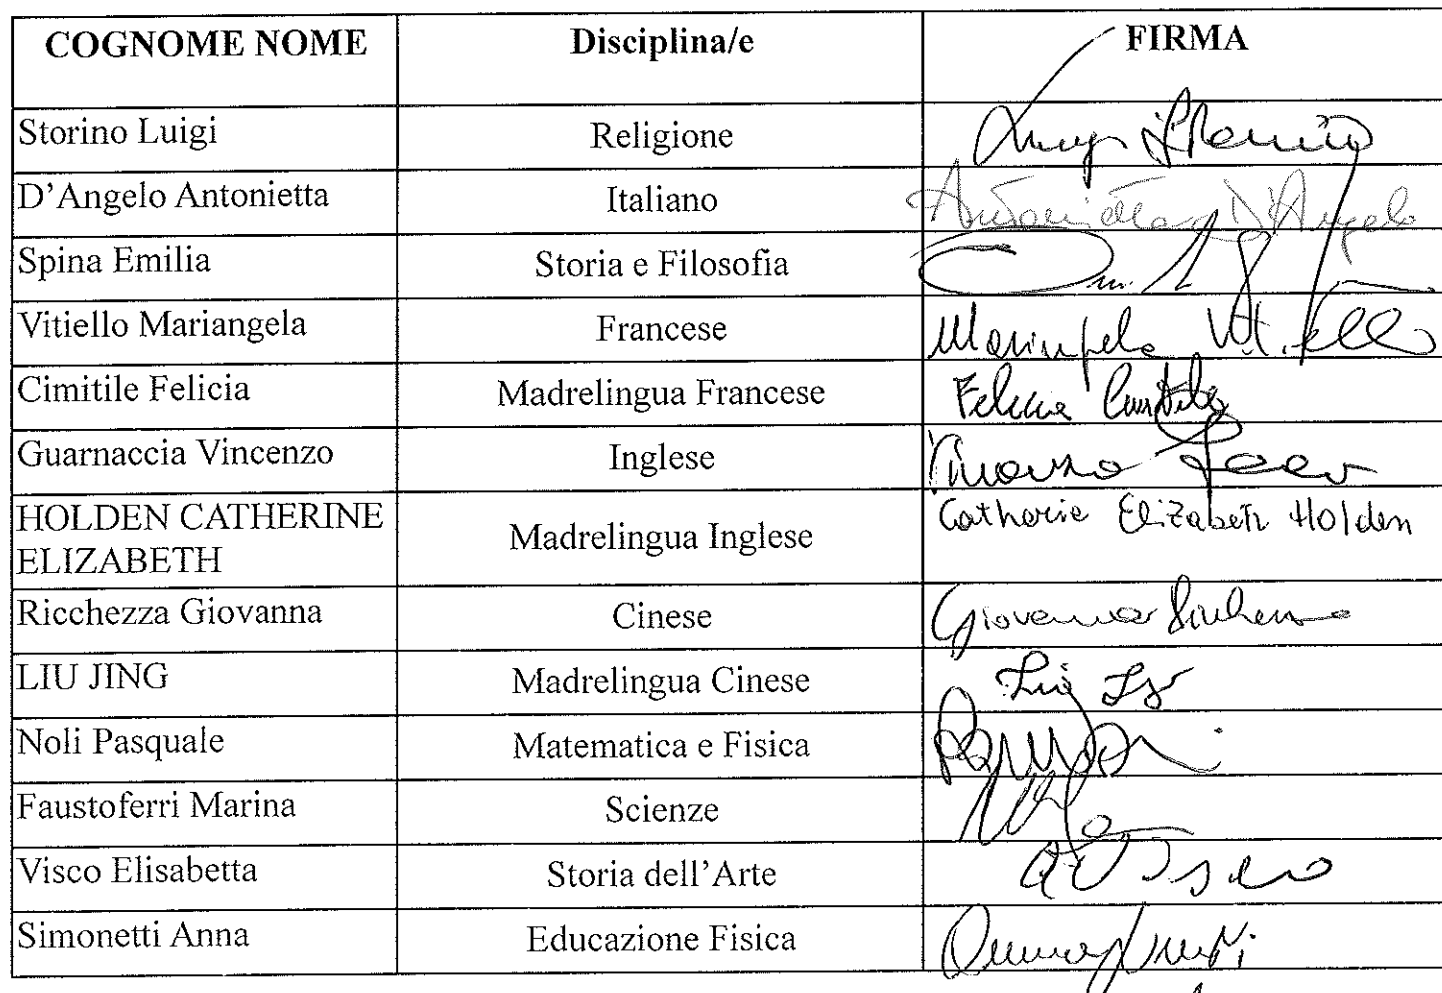 COGNOME NOME Disciplina/e FIRMA
Storino Luigi Religione Luigi Storino
D'Angelo Antonietta Italiano Antonietta D'Angelo
Spina Emilia Storia e Filosofia
Vitiello Mariangela Francese Mariangela Vitiello
Cimitile Felicia Madrelingua Francese Felicia Cimitile
Guarnaccia Vincenzo Inglese
HOLDEN CATHERINE Madrelingua Inglese Catherine Elizabeth Holden
ELIZABETH
Ricchezza Giovanna Cinese Giovanna Ricchezza
LIU JING Madrelingua Cinese Liu
Noli Pasquale Matematica e Fisica
Faustoferri Marina Scienze
Visco Elisabetta Storia dell'Arte
Simonetti Anna Educazione Fisica